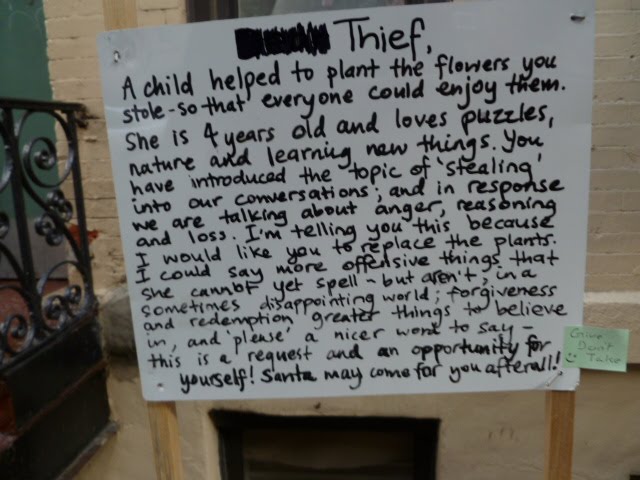 Thief,
A child helped to plant the flowers you
stole - so that everyone could enjoy them.
She is 4 years old and loves puzzles,
nature and learning new things. You
have introduced the topic of 'stealing'
into our conversations; and in response
we are talking about anger, reasoning
and loss. I'm telling you this because
I would like you to replace the plants.
I could say more offensive things that
she cannot yet spell - but aren't, in a
sometimes disappointing world; forgiveness
and redemption greater things to believe
in, and 'please' a nicer word to say -
this is a request and an opportunity for
yourself! Santa may come for you afterall!
Give
Don't
Take